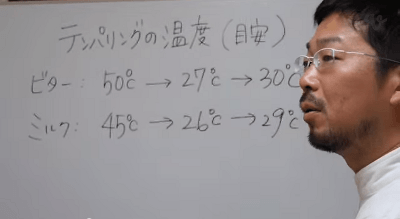 テンパリングの温度(目安)
ビター: 50℃ → 27℃ → 30℃
ミルク: 45℃ → 26℃ → 29℃